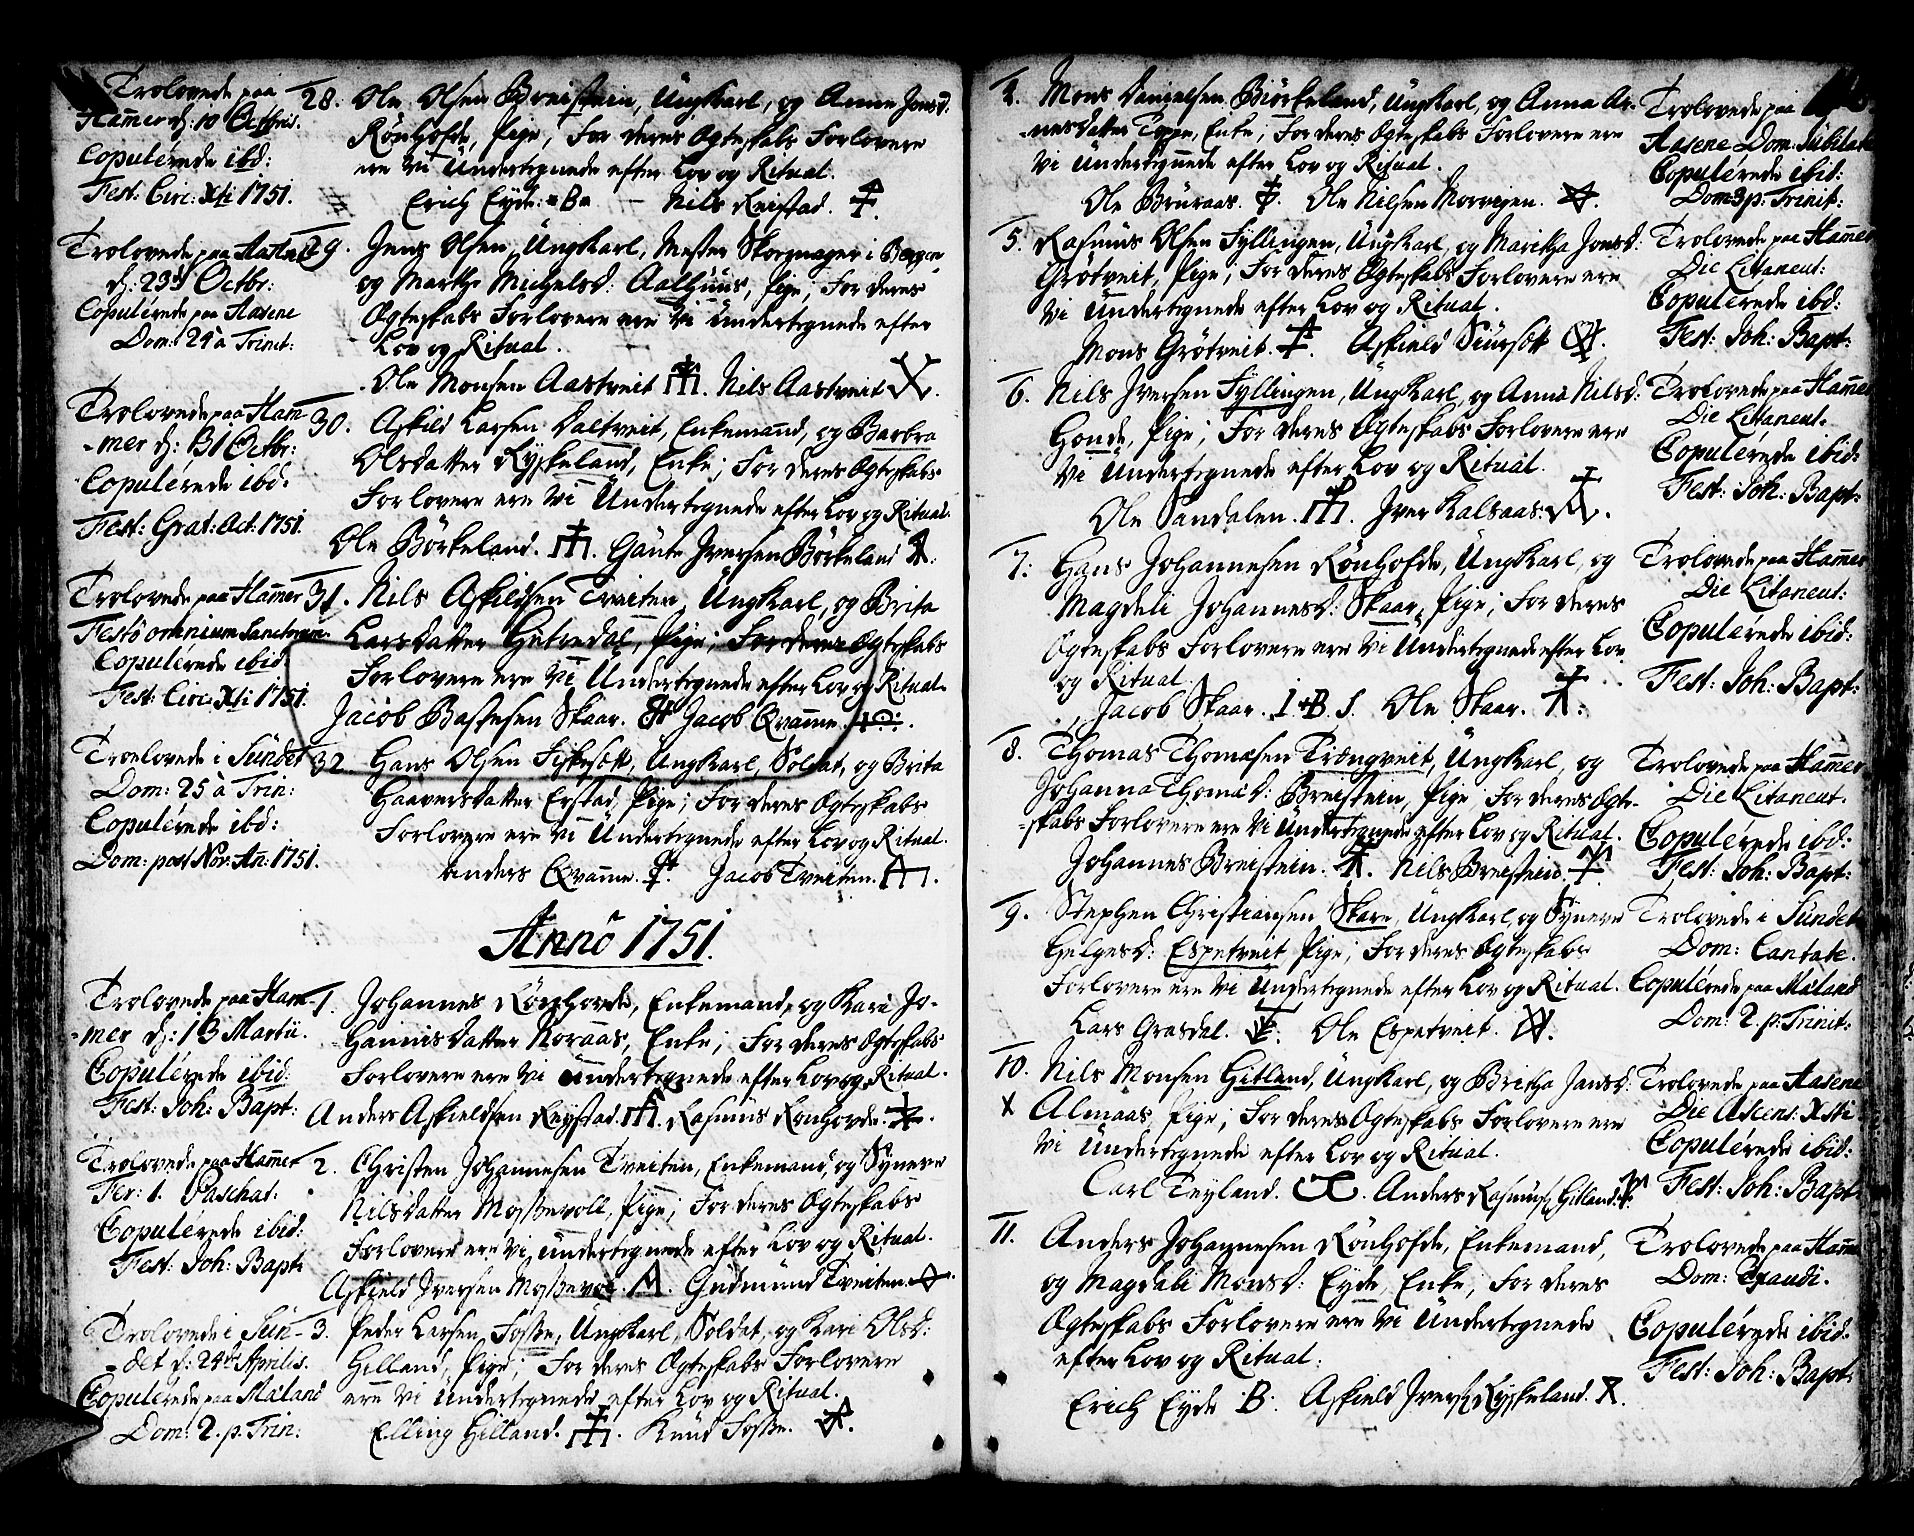 Trolovede paa
Hamer d: 10 Octbris.
Copulérede ibd:
Fest: Circ: Xti 1751.
28. Ole Olsen Breistein, Ungkarl, og Anne Jonsd:
Rönhofde, Pige; For deres Ægteskabs Forlovere
ere Vi Undertegnede efter Lov og Ritual.
Erich Eyde: B Nils Reistad.
Trolovede paa Hasene
d: 23d Octbr:
Copulérede paa Aasene
Dom: 25 à Trinit:
29. Jens Olsen, Ungkarl, Mester Skoemager i Bergen
og Marthe Michelsd: Aalhuus, Pige; For deres
Ægteskabs Forlovere ere Vi Undertegnede efter
Lov og Ritual.
Ole Monsen Aastveit. Nils Aastveit
Trolovede paa Ham-
-mer d: 31 Octbr:
Copulérede ibd.
Fest: Grat: Act: 1751.
30. Askild Larsen Daltveit, Enkemand, og Barbra
Olsdatter Ryskeland, Enke; For deres Ægteskabs
Forlovere ere Vi Undertegnede efter Lov og Ritual.
Ole Börkeland. Gaute Iversen Börkeland
Trolovede paa Hamer
Festo omnium Sanctorum
Copulérede ibid
Fest: Circ: Xti 1751.
31. Nils Askildsen Tveiten, Ungkarl, og Brita
Larsdatter Hetredal, Pige; For deres Ægteskabs
Forlovere ere Vi Undertegnede efter Lov og Ritual.
Jacob Bastesen Skaar. Jacob Qvamme.
Troelovede i Sundet
Dom: 25 à Trin:
Copulérede ibd:
Dom: post Nov: An: 1751.
32. Hans Olsen Fiskesett, Ungkarl, Soldat, og Brita
Haaversdatter Erstad, Pige; For deres Ægteskabs
Forlovere ere Vi Undertegnede efter Lov og Ritual.
Anders Qvamme. Jacob Tveiten.
Anno 1751.
Trolovede paa Ham-
-mer d: 13 Martii.
Copulérede ibid:
Fest: Joh: Bapt:
1. Johannes Rönhovde, Enkemand, og Kari Jo-
hannisdatter Noraas, Enke; For deres Ægteskabs
Forlovere ere Vi Undertegnede efter Lov og Ritual.
Anders Askieldsen Reystad. Rasmus Rönhovde.
Trolovede paa Hamer
Fer: 1. Paschat:
Copulérede ibid:
Fest: Joh: Bapt:
2. Christen Johannesen Tveiten, Enkemand, og Synneve
Nilsdatter Mossevoll, Pige; For deres Ægteskabs
Forlovere ere Vi Undertegnede efter Lov og Ritual.
Askield Iversen Mossevol. Gudmund Tveiten.
Trolovede i Sun-
-det d: 24d Aprilis.
Copulérede paa Mæland
Dom: 2. p. Trin:
3. Peder Larsen Fosse, Ungkarl, Soldat, og Kari Olsd:
Hilland, Pige; For deres Ægteskabs Forlovere
ere Vi Undertegnede efter Lov og Ritual.
Elling Hilland. Knud Fosse.
4. Mons Danielsen Biörkeland, Ungkarl, og Anna Ar-
nesdatter Toppe, Enke; For deres Ægteskabs Forlovere ere
Vi Undertegnede efter Lov og Ritual.
Ole Bruraas. Ole Nilsen Morvigen.
Trolovede paa
Aasene Dom: Jubilate
Copulérede ibid:
Dom 3 p: Trinit:
5. Rasmus Olsen Fyllingen, Ungkarl, og Maritha Jonsd:
Grötveit, Pige; For deres Ægteskabs Forlovere ere
Vi Undertegnede efter Lov og Ritual.
Mons Grötveit. Askield Siursett
Trolovede paa Hamer
Die Litaneut:
Copulérede ibd:
Fest: Joh: Bapt:
6. Nils Iversen Fyllingen, Ungkarl, og Anna Nilsd:
Honde, Pige; For deres Ægteskabs Forlovere ere
Vi Undertegnede efter Lov og Ritual.
Ole Sandalen. Iver Kalsaas:
Trolovede paa Hamer
Die Littaneut.
Copulérede ibid:
Fest: Joh: Bapt:
7. Hans Johannesen Rönhofde, Ungkarl, og
Magdeli Johannesd: Skaar, Pige; For deres
Ægteskabs Forlovere ere Vi Undertegnede efter Lov
og Ritual.
Jacob Skaar. I.B.S. Ole Skaar.
Trolovede paa Hamer
Die Litaneut:
Copulerede ibid:
Fest: Joh: Bapt:
8. Thomas Thomæsen Trongveit, Ungkarl, og
Johanna Thomæd: Breistein, Pige; For deres Ægte-
-skabs Forlovere ere Vi Undertegnede efter Lov og Ritual.
Johannes Breistein. Nils Breistein.
Trolovede paa Hamer
Die Litaneut.
Copulérede ibd:
Fest: Joh: Bapt:
9. Stephen Christiansen Skare, Ungkarl, og Synneve
Helgesd: Espetveit Pige; For deres Ægteskabs
Forlovere ere Vi Undertegnede efter Lov og Ritual.
Lars Grasdal. Ole Espetveit.
Trolovede i Sundet
Dom: Cantate.
Copulérede paa Mæland
Dom: 2. p. Trinit:
10. Nils Monsen Hitland, Ungkarl, og Britha Jansd:
X Almaas, Pige; For deres Ægteskabs Forlovere ere
Vi Undertegnede efter Lov og Ritual.
Carl Teyland. Anders Rasmusen Hitland.
Trolovede paa Aasene
Die Ascens: Xsti
Copulérede ibid:
Fest: Joh: Bapt:
11. Anders Johannesen Rönhofde, Enkemand,
og Magdeli Monsd: Eyde, Enke; For deres
Ægteskabs Forlovere ere Vi Undertegnede
efter Lov og Ritual:
Erich Eyde B. Askield Iversen Ryskeland.
Trolovede paa Hamer
Dom: Exaudi.
Copulérede ibid.
Fest: Joh: Bapt: